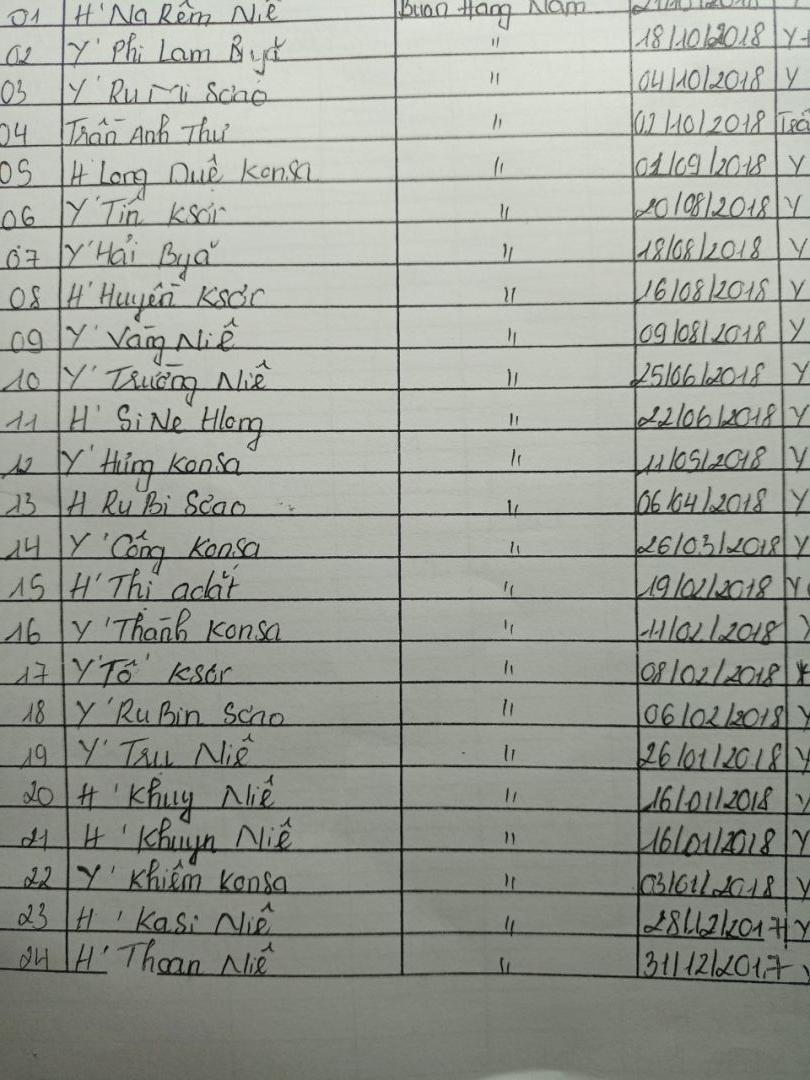 01 H' Na Rêm Niê Buôn Hang Năm
02 Y' Phi Lam Byă " 18/10/2018 Y
03 Y' Ru Mi Sơao " 04/10/2018 Y
04 Trần Anh Thư " 02/10/2018
05 H Long Duê Konsa " 01/09/2018 Y
06 Y' Tín Ksơr " 20/08/2018 Y
07 Y' Hải Byă " 18/08/2018 Y
08 H' Huyền Ksơr " 16/08/2018 Y
09 Y' Vãng Niê " 09/08/2018 Y
10 Y' Trường Niê " 25/06/2018 Y
11 H' Si Ne Hlong " 22/06/2018 Y
12 Y' Hưng Konsa " 11/05/2018 Y
13 H Ru Bi Sơao " 06/04/2018 Y
14 Y' Công Konsa " 26/03/2018 Y
15 H' Thi adắt " 19/02/2018 Y
16 Y' Thanh Konsa " 11/02/2018
17 Y' Tô Ksơr " 08/02/2018
18 Y' Ru Bin Sơao " 06/02/2018 Y
19 Y' Tru Niê " 26/01/2018 Y
20 H' Khuy Niê " 16/01/2018 Y
21 H' Khuyn Niê " 16/01/2018 Y
22 Y' Khiêm Konsa " 03/01/2018 Y
23 H' Kasi Niê " 28/12/2017 Y
24 H' Thoan Niê " 31/12/2017